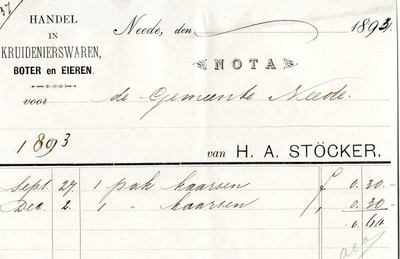 HANDEL
IN
KRUIDENIERSWAREN,
BOTER en EIEREN.
Neede, den 1893.
NOTA
voor de Gemeente Neede.
1893
van H. A. STÖCKER.
Sept. 27. 1 pak kaarsen f 0.30.-
Dec. 2. 1 " kaarsen " 0.30-
0.60